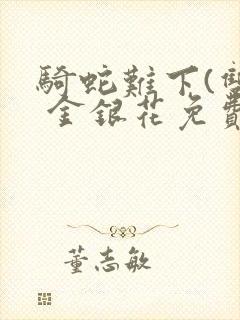 騎蛇難下(雙
金銀花免費
董志敏